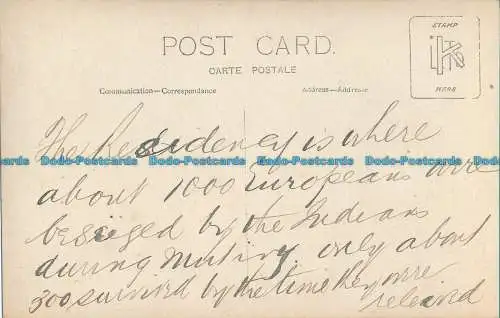 POST CARD.
CARTE POSTALE
STAMP
HERE
Communication—Correspondance
Address—Addresse
The Residency is where
Dodo-Postcards Dodo-Postcards Dodo-Postcards Dodo-Postcards
about 1000 Europeans were
beseiged by the Indians
during mutiny. only about
300 survived by the time they were
releived